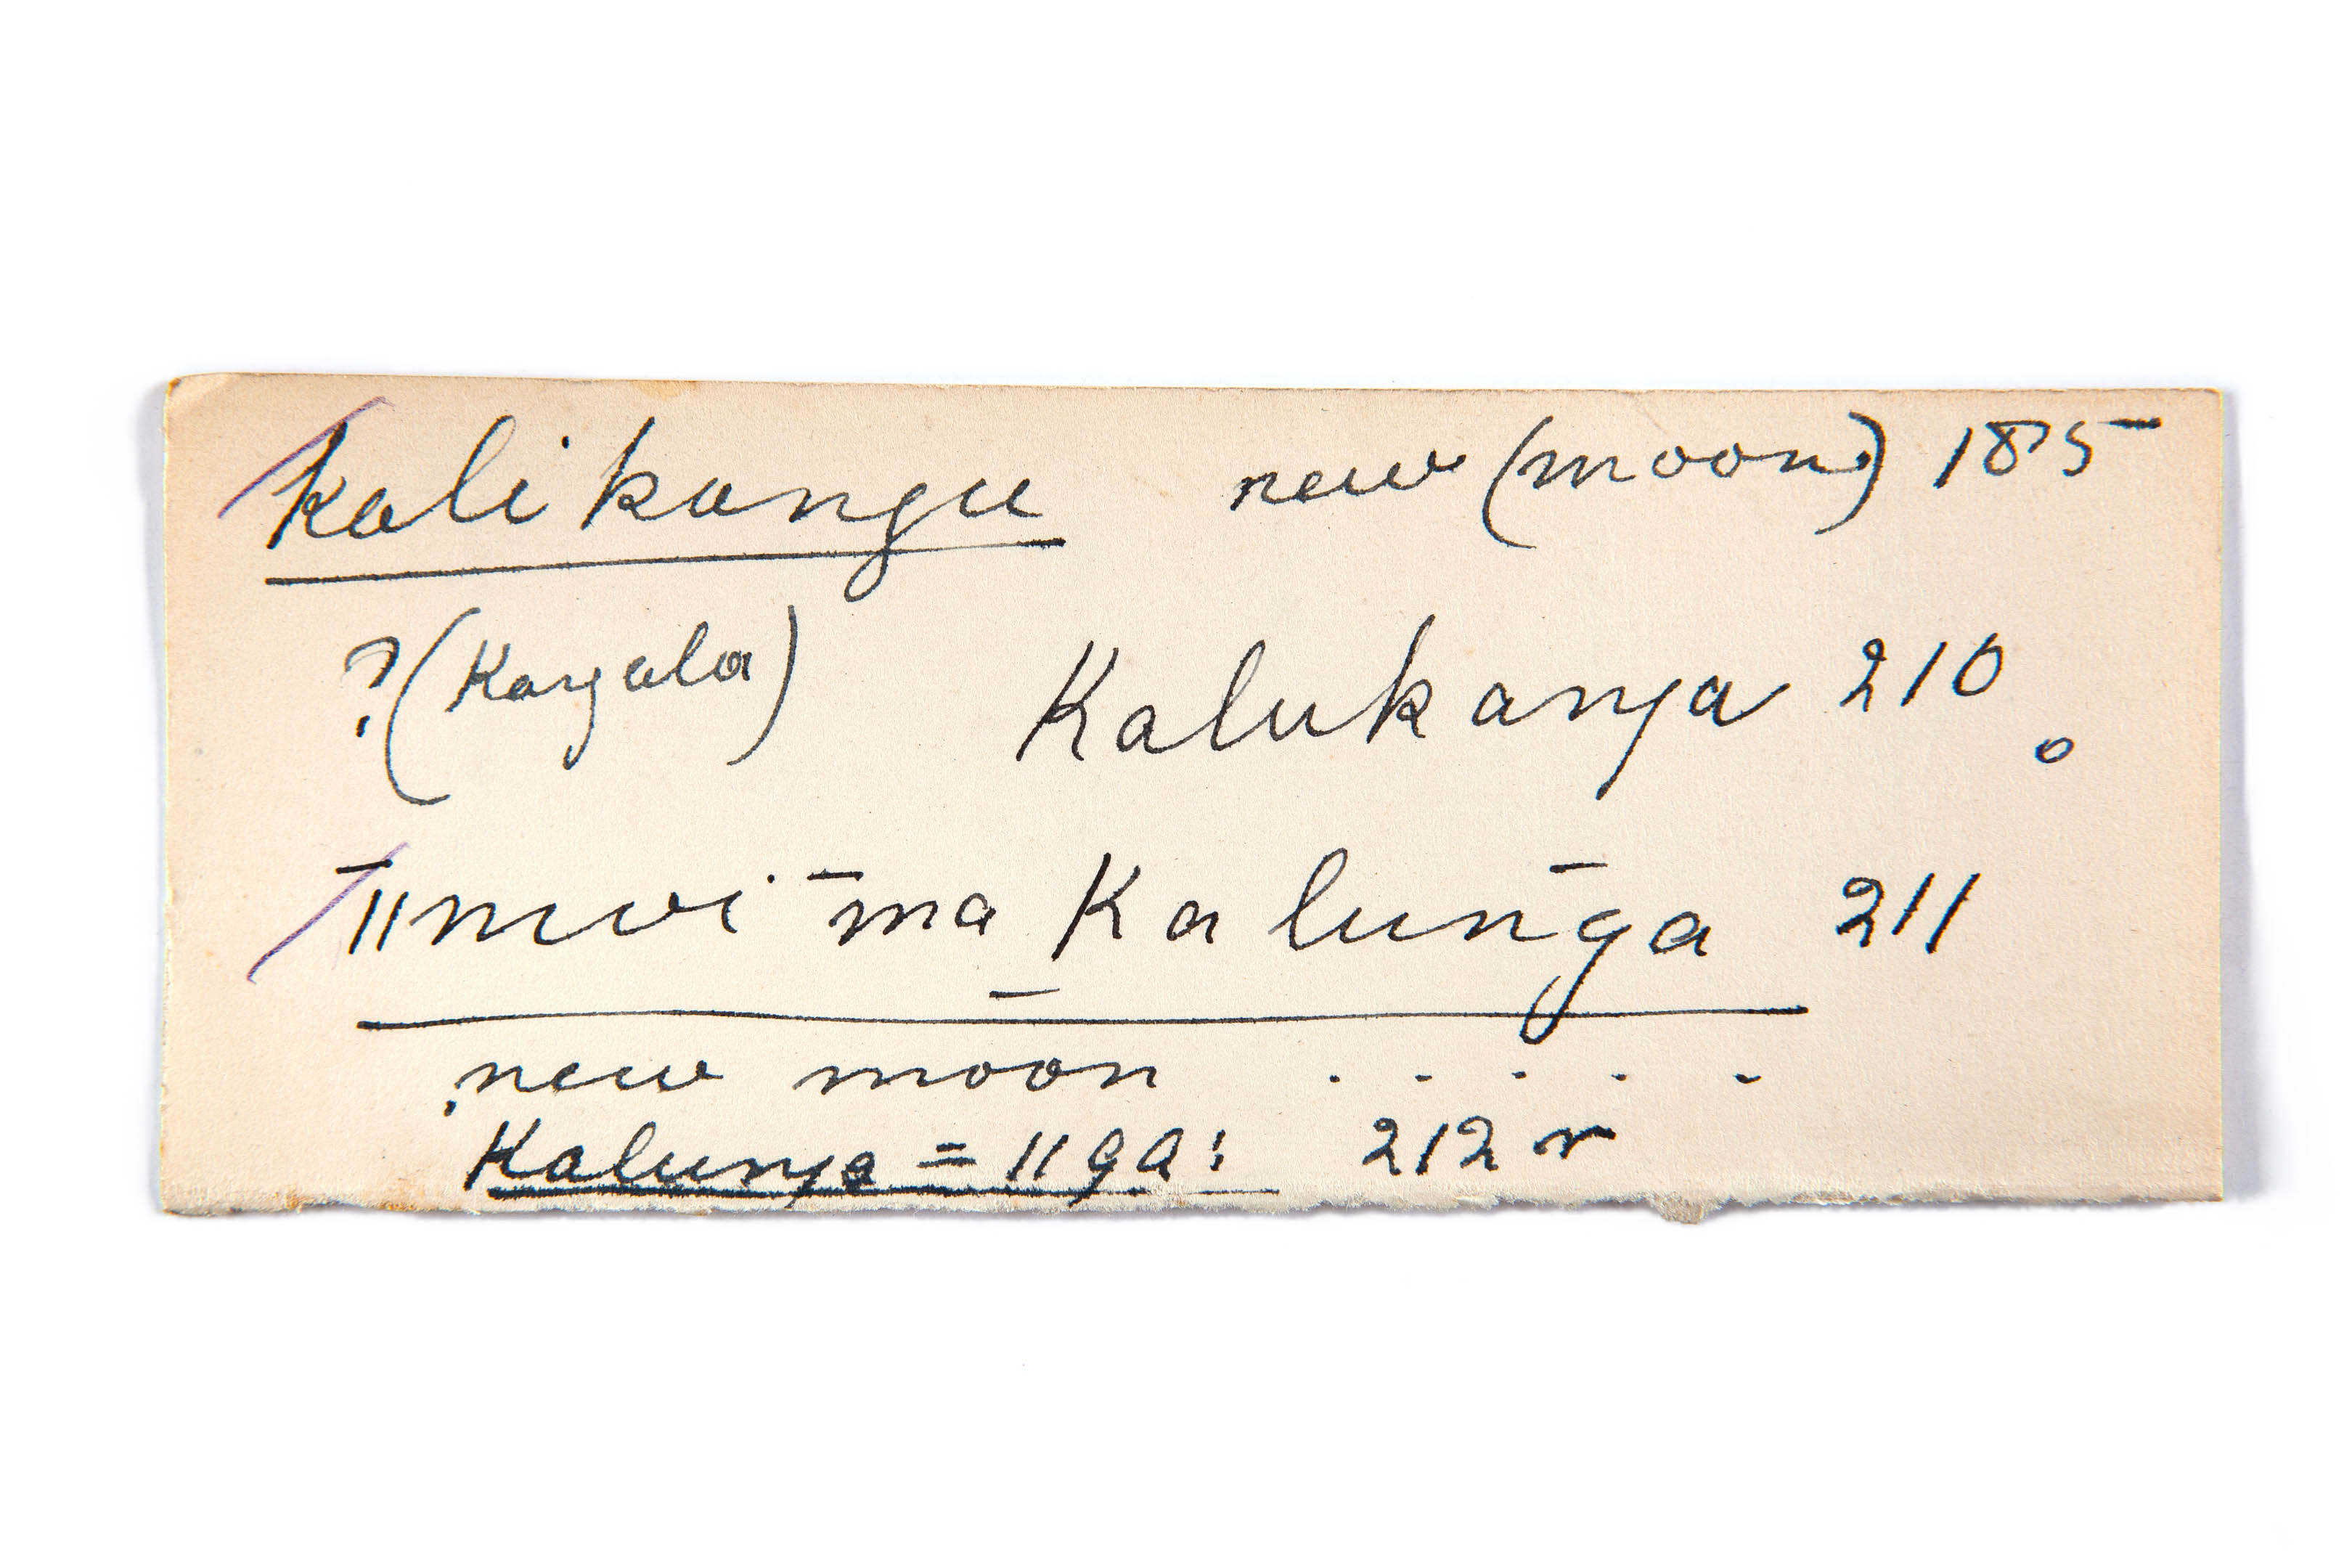 kalikangu new (moon) 185
?(Kaŋala) Kalukaŋa 210
o
‾ǁnwi ‾ma _Kalun‾ga 211
new moon . . . . .
Kaluŋa = ǁga! 212 r